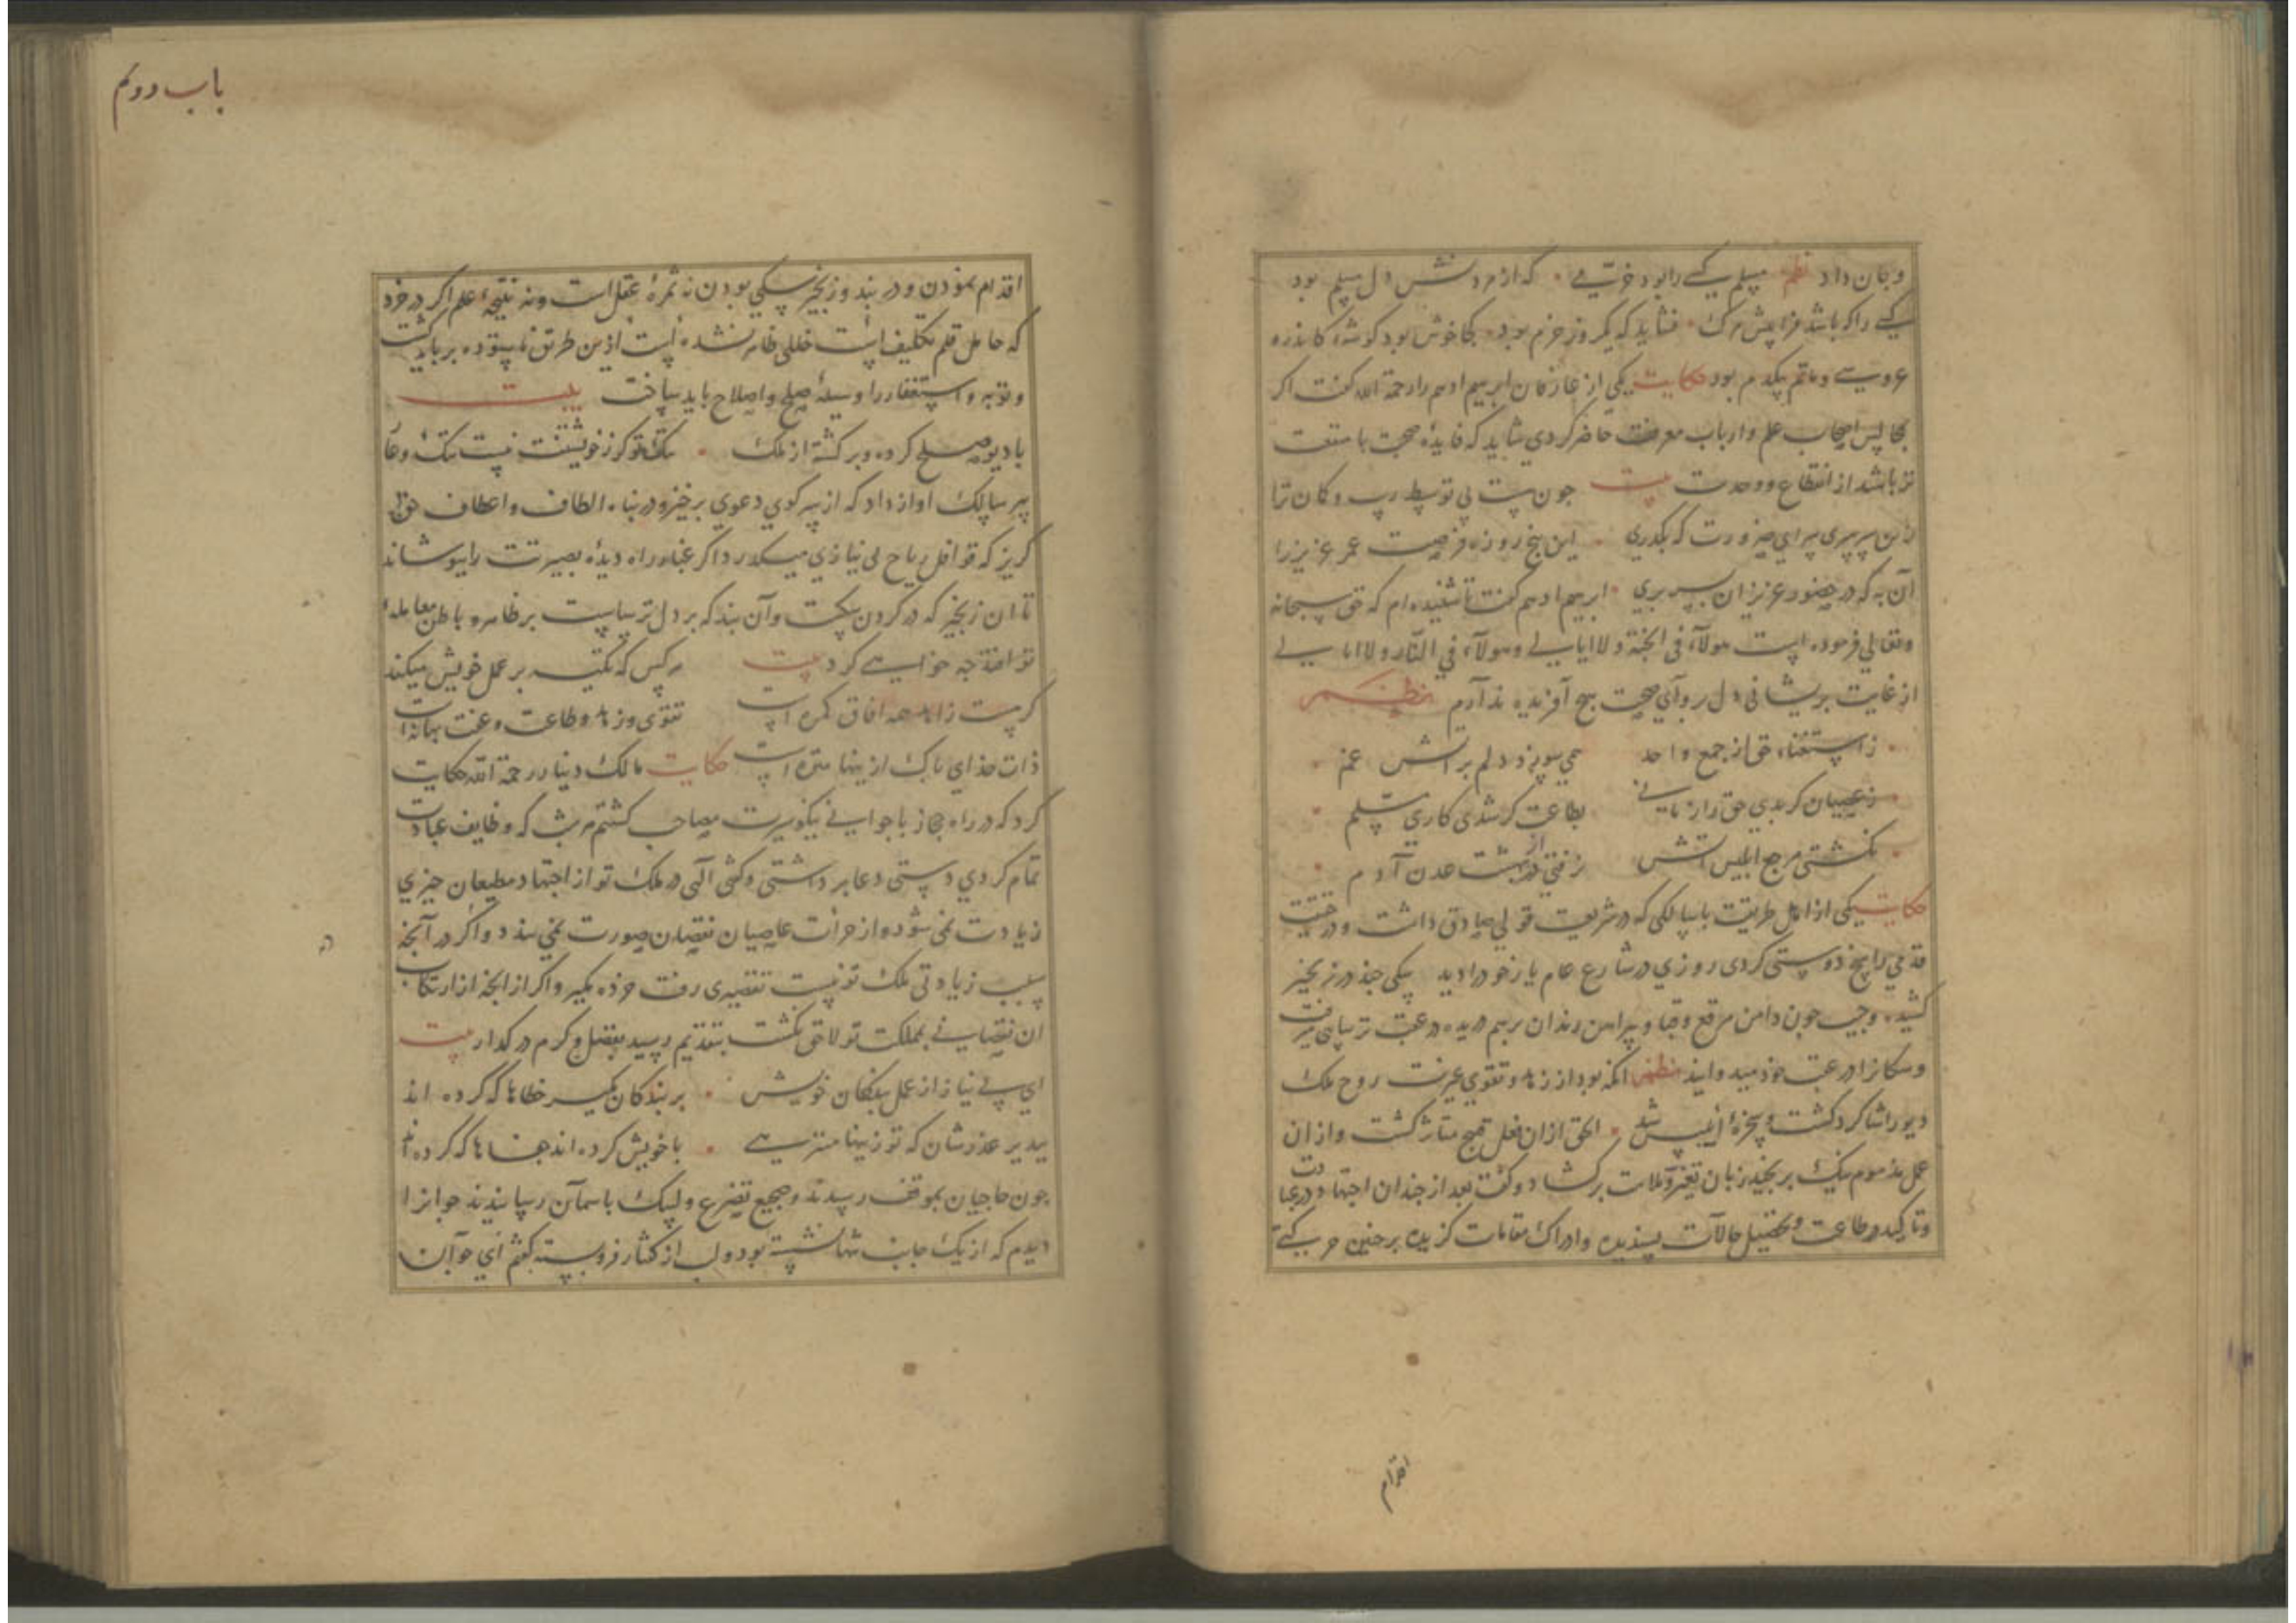 و جان داد نظم مسلم کسی را بود خرّمی که از مردنش دل مسلم بود
کسی را که باشد فراپیش مرک نشاید که یکروز خرم بود کجا خوش بود کوشهٔ کاندره
عروسی و ماتم یکدم بود حکایت یکی از عارفان ابرهیم ادهم را رحمة الله کفت اکر
بمجالس اصحاب علم و ارباب معرفت حاضر کردی شاید که فایدهٔ صحبت با منفعت
تر باشد از انقطاع و وحدت بیت جون نیست بی توسط رب و کان ترا
زین سرسری سرای ضرورت که بکذری این پنج روزه فرصت عمر عزیز را
آن به که در حضور عزیزان بسر بری ابرهیم ادهم کفت تا شنیده ام که حق سبحانه
و تعالی فرموده است هولآء فی الجنة ولا ابالی و هولآء فی النّار ولا ابالی
از غایت پریشانی دل پروای صحبت هیچ آفریده ندارم نظم
ز استغناء حق از جمع واحد همی سوزد دلم بر آتش غم
ز عصیان کر بدی حق را زیانی بطاعت کر شدی کاری مسلم
نکشتی مرجع ابلیس آتش نرفتی از بهشت عدن آدم
حکایت یکی از اهل طریقت با سالکی که در شریعت قولی صادق داشت و در حقیقت
قدمی راسخ دوستی کردی روزی در شارع عام یار خود را دید سکی جند در زنجیر
کشیده و جیب جون دامن مرقع و قبا و پیراهن رندان بر هم دریده در عقب ترسایی میرفت
و سکانرا در عقب خود میدوانید نظم انکه بود از زهد و تقوی غیرت روح ملک
دیو را شاکرد کشت و سخرهٔ ابلیس شد الحق از ان فعل قبیح متاثر کشت و از ان
عمل مذموم نیک برنجید زبان تعیّر و ملامت برکشاد و کفت بعد از جندان اجتهاد در عبادت
و تاکید و طاعت و تحصیل حالات پسندیده و ادراک مقامات کزیده بر جنین حرکتی
اقدام
باب دوم
اقدام نمودن و در بند و زنجیر سکی بودن نه ثمرهٔ عقل است و نه نتیجهٔ علم اکر در خرد
که حامل قلم تکلیف است خللی ظاهر نشده است ازین طریق ناستوده برباید کشت
و توبه و استغفار را وسیلهٔ صلح و اصلاح باید ساخت بیت
با دیو صلح کرده و برکشته از ملک سک کرز خویشتنت نیست ننک و عار
پیر سالک اواز داد که از سر کوی دعوی برخیز و در پناه الطاف و اعطاف حق
کریز که قوافل ریاح بی نیازی میکذرد اکر غبار راه دیدهٔ بصیرتت را بپوشاند
تا ان زنجیر که در کردن سکست و آن بند که بر دل ترساست بر ظاهر و باطن معاملهٔ
تو افتد جه خواهی کرد بیت هر کس که تکیه بر عمل خویش میکند
کر هست زاهد همه افاق کمره است تقوی و زهد و طاعت و عفت بهانه است
ذات خدای پاک از ینها منزه است حکایت مالک دینار رحمة الله حکایت
کرد که در راه حجاز با جوانی نیکو سیرت مصاحب کشتم هر شب که وظایف عبادت
تمام کردی دستی دعا برداشتی و کفتی الهی در ملک تو از اجتهاد مطیعان جیزی
زیادت نمی شود و از جرأت عاصیان نقصان صورت نمی بندد اکر در آنجه
سبب زیادتی ملک تو نیست تقصیری رفت خرده مکیر و اکر از انجه از ارتکاب
ان نقصانی بمملکت تو لاحق نکشت بتقدیم رسید بفضل و کرم درکذار بیت
ای بی نیاز از عمل بندکان خویش بر بندکان مکیر خطاها که کرده اند
بپذیر عذرشان که تو زینها منزهی با خویش کرده اند جفاها که کرده اند
جون حاجیان بموقف رسیدند و ضجیع تضرع و لبیک باسمان رسانیدند جوانرا
دیدم که از یک جانب تنها نشسته بود و لب از کفتار فروبسته کفتم ای جوان